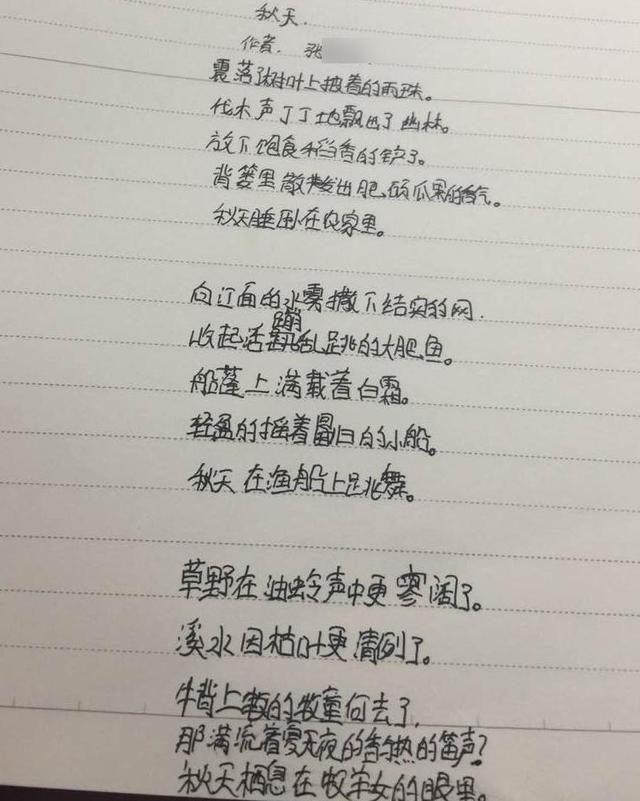 秋天.
作者. 张
震落树叶上披着的雨珠。
伐木声丁丁地飘出了幽林。
放下饱食稻香的铲了。
背篓里散发出肥硕瓜果的香气。
秋天睡卧在农家里。
向江面的水雾撒下结实的网.
收起活蹦乱跳的大肥鱼。
船蓬上满载着白霜。
轻盈的摇着归的小船。
秋天在渔船上跳舞。
草野在油蛉声中更寥阔了。
溪水因枯叶更清列了。
牛背上的牧童何去了,
那满流着夏天夜的香热的笛声?
秋天栖息在牧羊女的眼里。